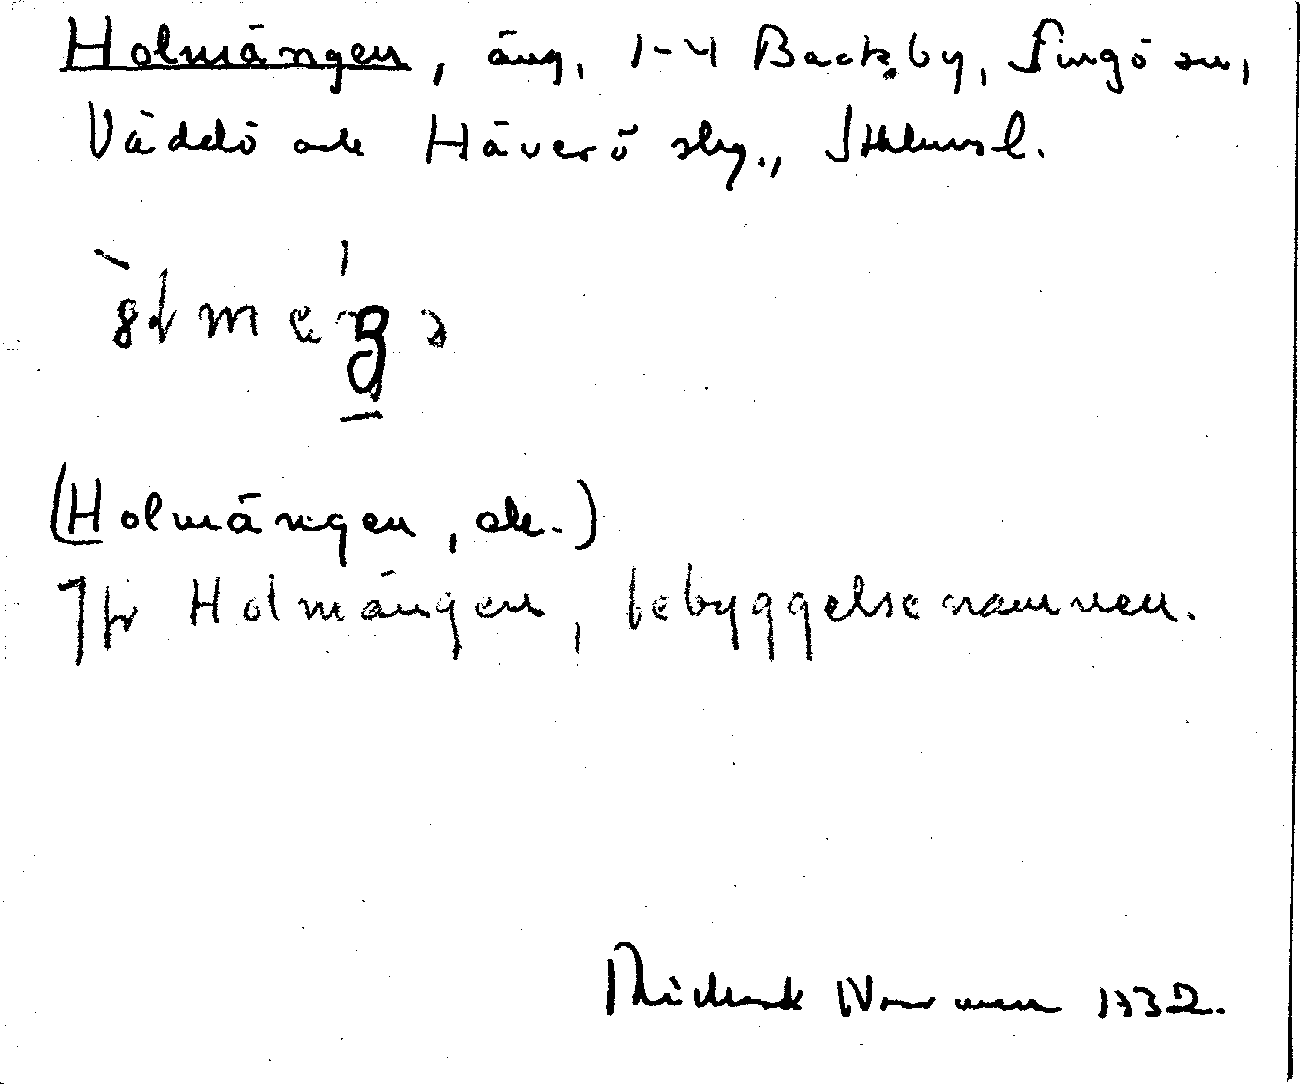 Holmängen, äng, 1-4 Backby, Singö sn,
Väddö och Häverö skg., Sthlms l.
(Holmängen, ek.)
Jfr Holmängen, bebyggelsenamnen.
Rickard Norman 1932.